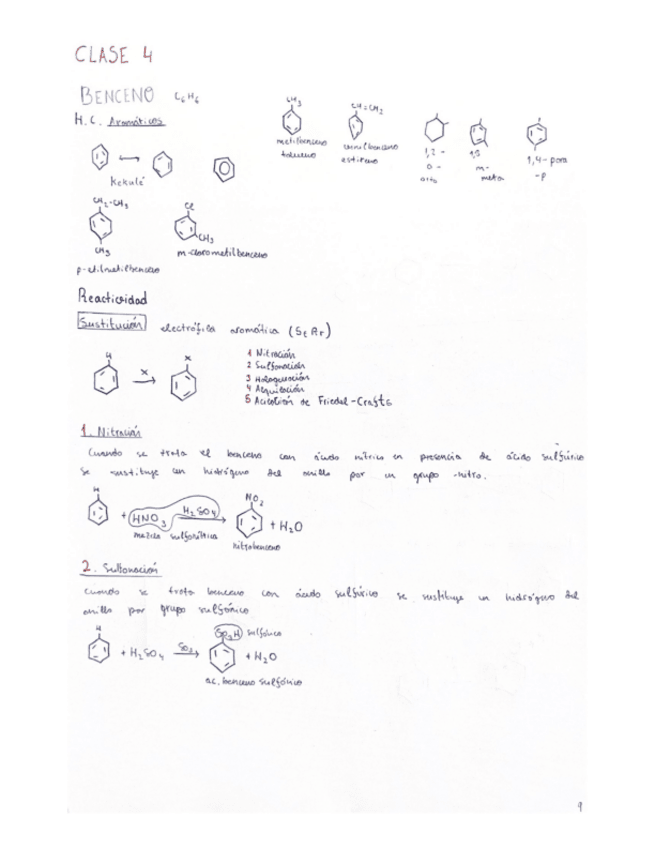 CLASE 4
BENCENO C6H6
H.C. Aromáticos
CH3
metilbenceno
tolueno
CH=CH2
vinilbenceno
estireno
1,2-
o-
orto
1,3
m-
meta
1,4-para
-p
Kekulé
CH2-CH3
CH3
p-etilmetilbenceno
Cl
CH3
m-clorometilbenceno
Reactividad
Sustitución electrófila aromática (SEAr)
H
X
X
1 Nitración
2 Sulfonación
3 Halogenación
4 Alquilación
5 Acilación de Friedel-Crafts
1. Nitración
Cuando se trata el benceno con ácido nítrico en presencia de ácido sulfúrico
se sustituye un hidrógeno del anillo por un grupo -nitro.
H
+ HNO3 H2SO4
NO2
+ H2O
mezcla sulfonítrica
nitrobenceno
2. Sulfonación
Cuando se trata benceno con ácido sulfúrico se sustituye un hidrógeno del
anillo por grupo sulfónico
H
+ H2SO4 SO3
SO3H sulfónico
+ H2O
ac. benceno sulfónico